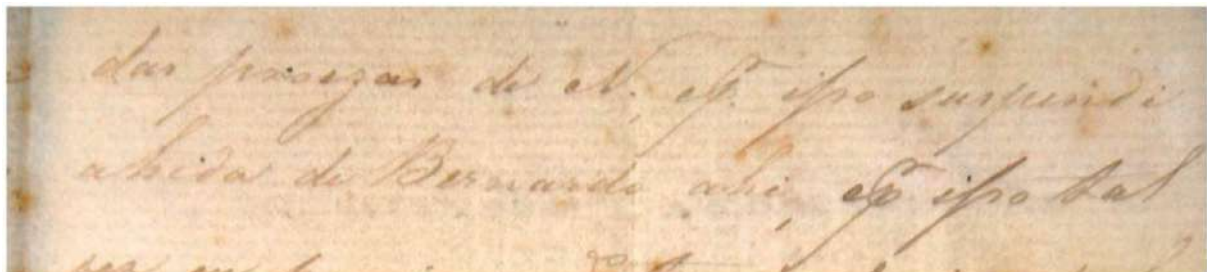 das proezas de N, e p. isso suspendi
ahida de Bernardo ahi, e p isso tal